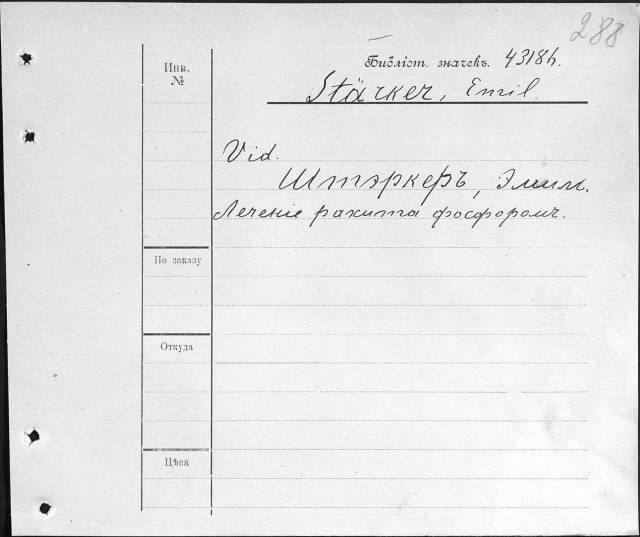 288
Библіот. значекъ. 43184.
Инв.
№
Stärker, Emil.
Vid.
Штэркеръ, Эмил.
Леченіе рахита фосфоромъ.
По заказу
Откуда
Цѣна